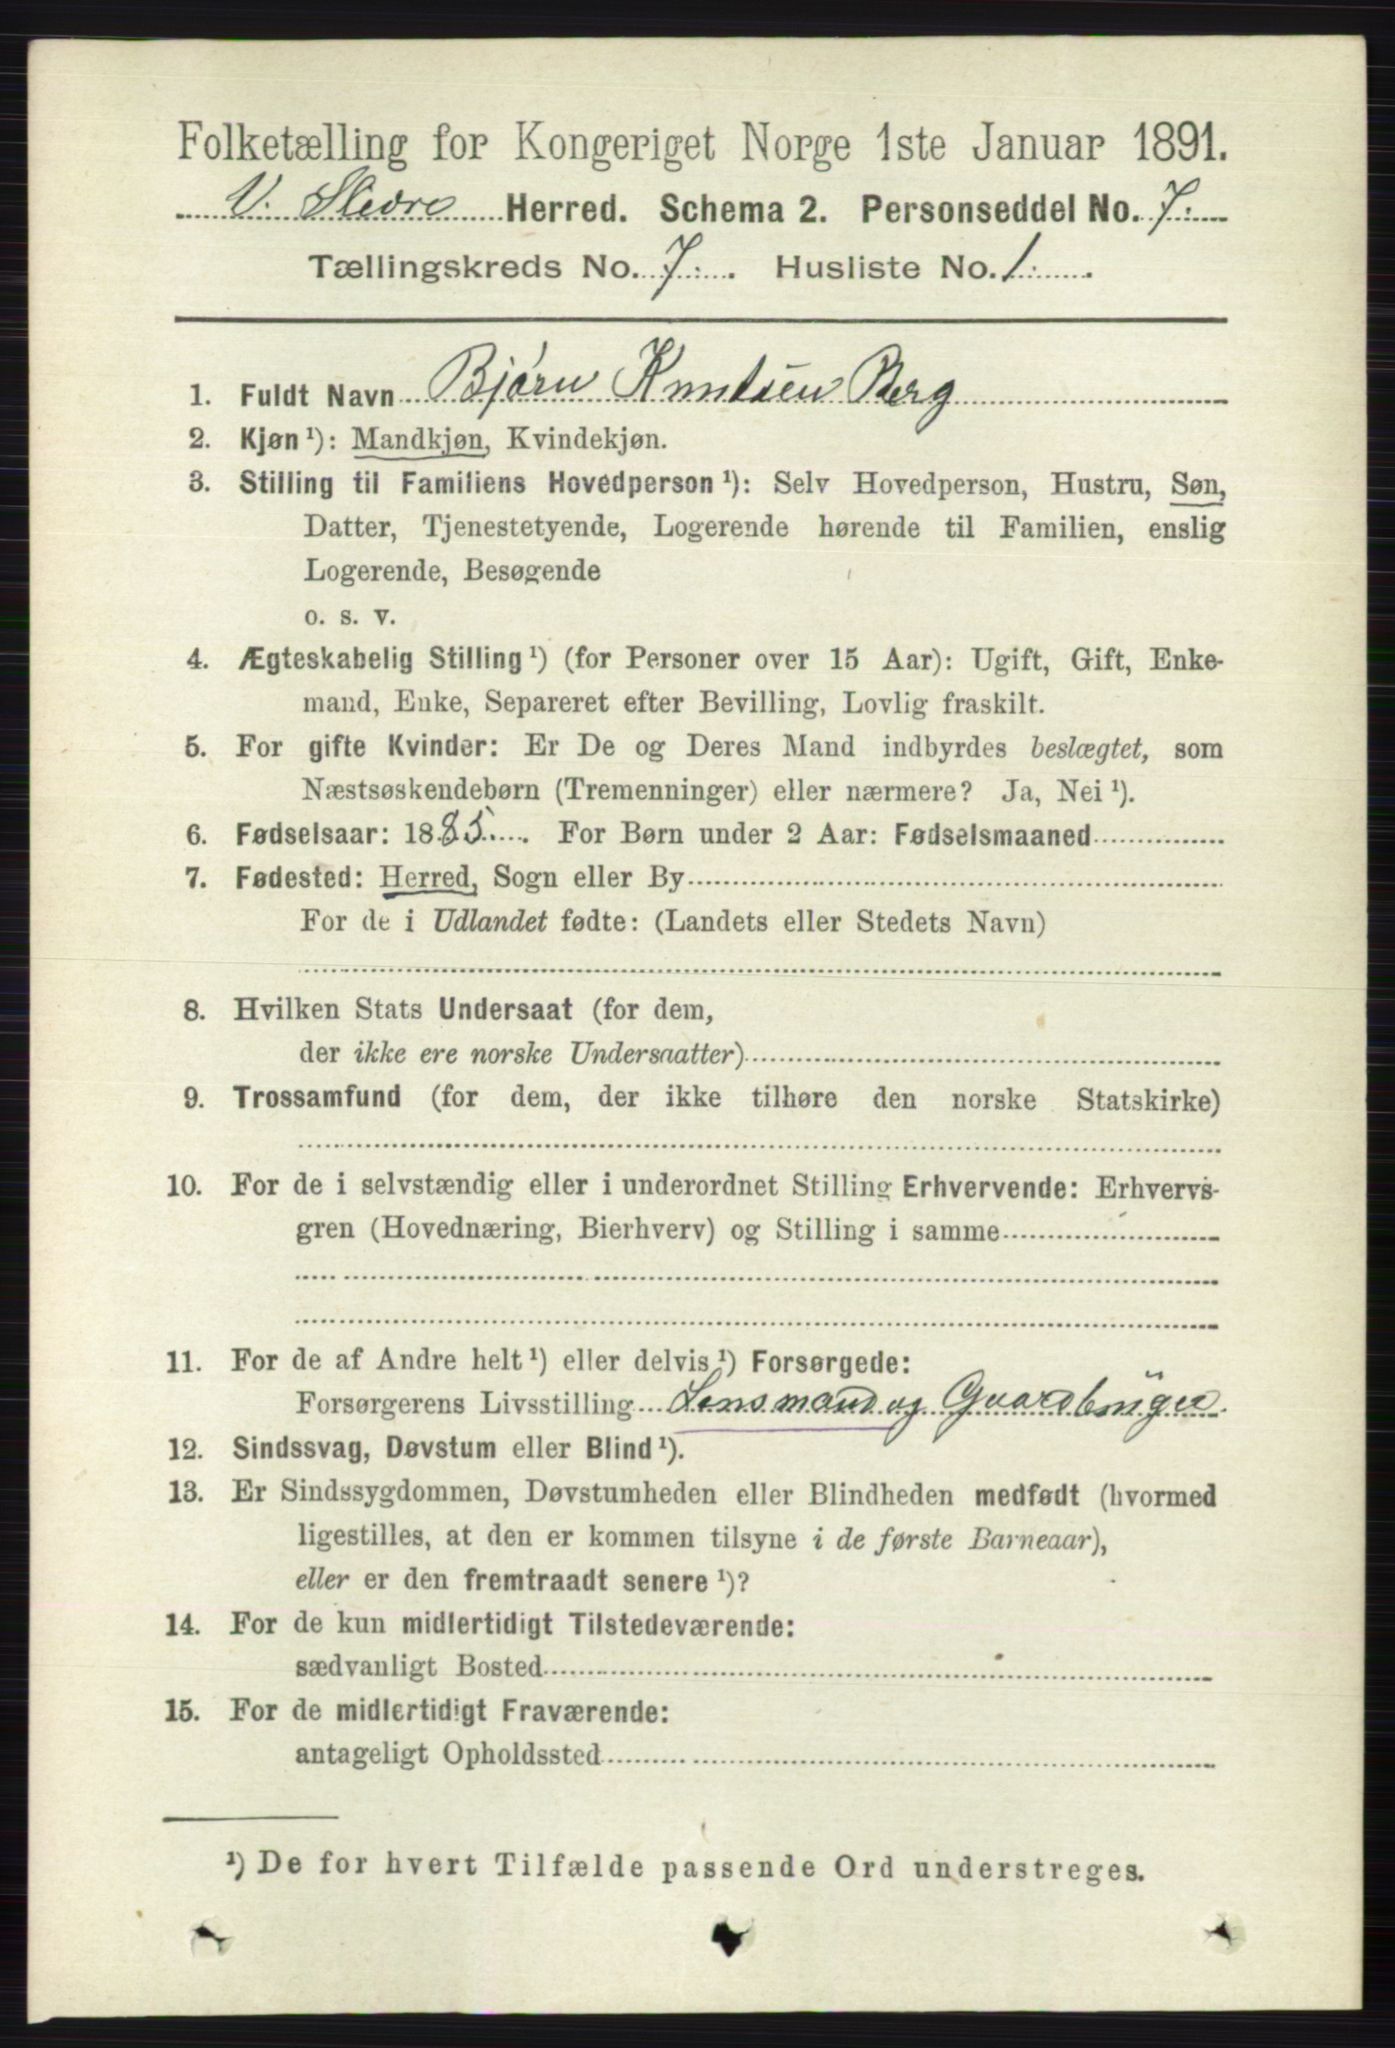 Folketælling for Kongeriget Norge 1ste Januar 1891.
V. Slidre Herred. Schema 2. Personseddel No. 7.
Tællingskreds No. 7. Husliste No. 1.
1. Fuldt Navn Bjørn Knutsen Berg
2. Kjøn ¹): Mandkjøn, Kvindekjøn.
3. Stilling til Familiens Hovedperson ¹): Selv Hovedperson, Hustru, Søn,
Datter, Tjenestetyende, Logerende hørende til Familien, enslig
Logerende, Besøgende
o. s. v.
4. Ægteskabelig Stilling ¹) (for Personer over 15 Aar): Ugift, Gift, Enke-
mand, Enke, Separeret efter Bevilling, Lovlig fraskilt.
5. For gifte Kvinder: Er De og Deres Mand indbyrdes beslægtet, som
Næstsøskendebørn (Tremenninger) eller nærmere? Ja, Nei ¹).
6. Fødselsaar: 1885. For Børn under 2 Aar: Fødselsmaaned
7. Fødested: Herred, Sogn eller By
For de i Udlandet fødte: (Landets eller Stedets Navn)
8. Hvilken Stats Undersaat (for dem,
der ikke ere norske Undersaatter)
9. Trossamfund (for dem, der ikke tilhøre den norske Statskirke)
10. For de i selvstændig eller i underordnet Stilling Erhvervende: Erhvervs-
gren (Hovednæring, Bierhverv) og Stilling i samme
11. For de af Andre helt ¹) eller delvis ¹) Forsørgede:
Forsørgerens Livsstilling Lensmand og Gaardbruger.
12. Sindssvag, Døvstum eller Blind ¹).
13. Er Sindssygdommen, Døvstumheden eller Blindheden medfødt (hvormed
ligestilles, at den er kommen tilsyne i de første Barneaar),
eller er den fremtraadt senere ¹)?
14. For de kun midlertidigt Tilstedeværende:
sædvanligt Bosted
15. For de midlertidigt Fraværende:
antageligt Opholdssted
¹) De for hvert Tilfælde passende Ord understreges.